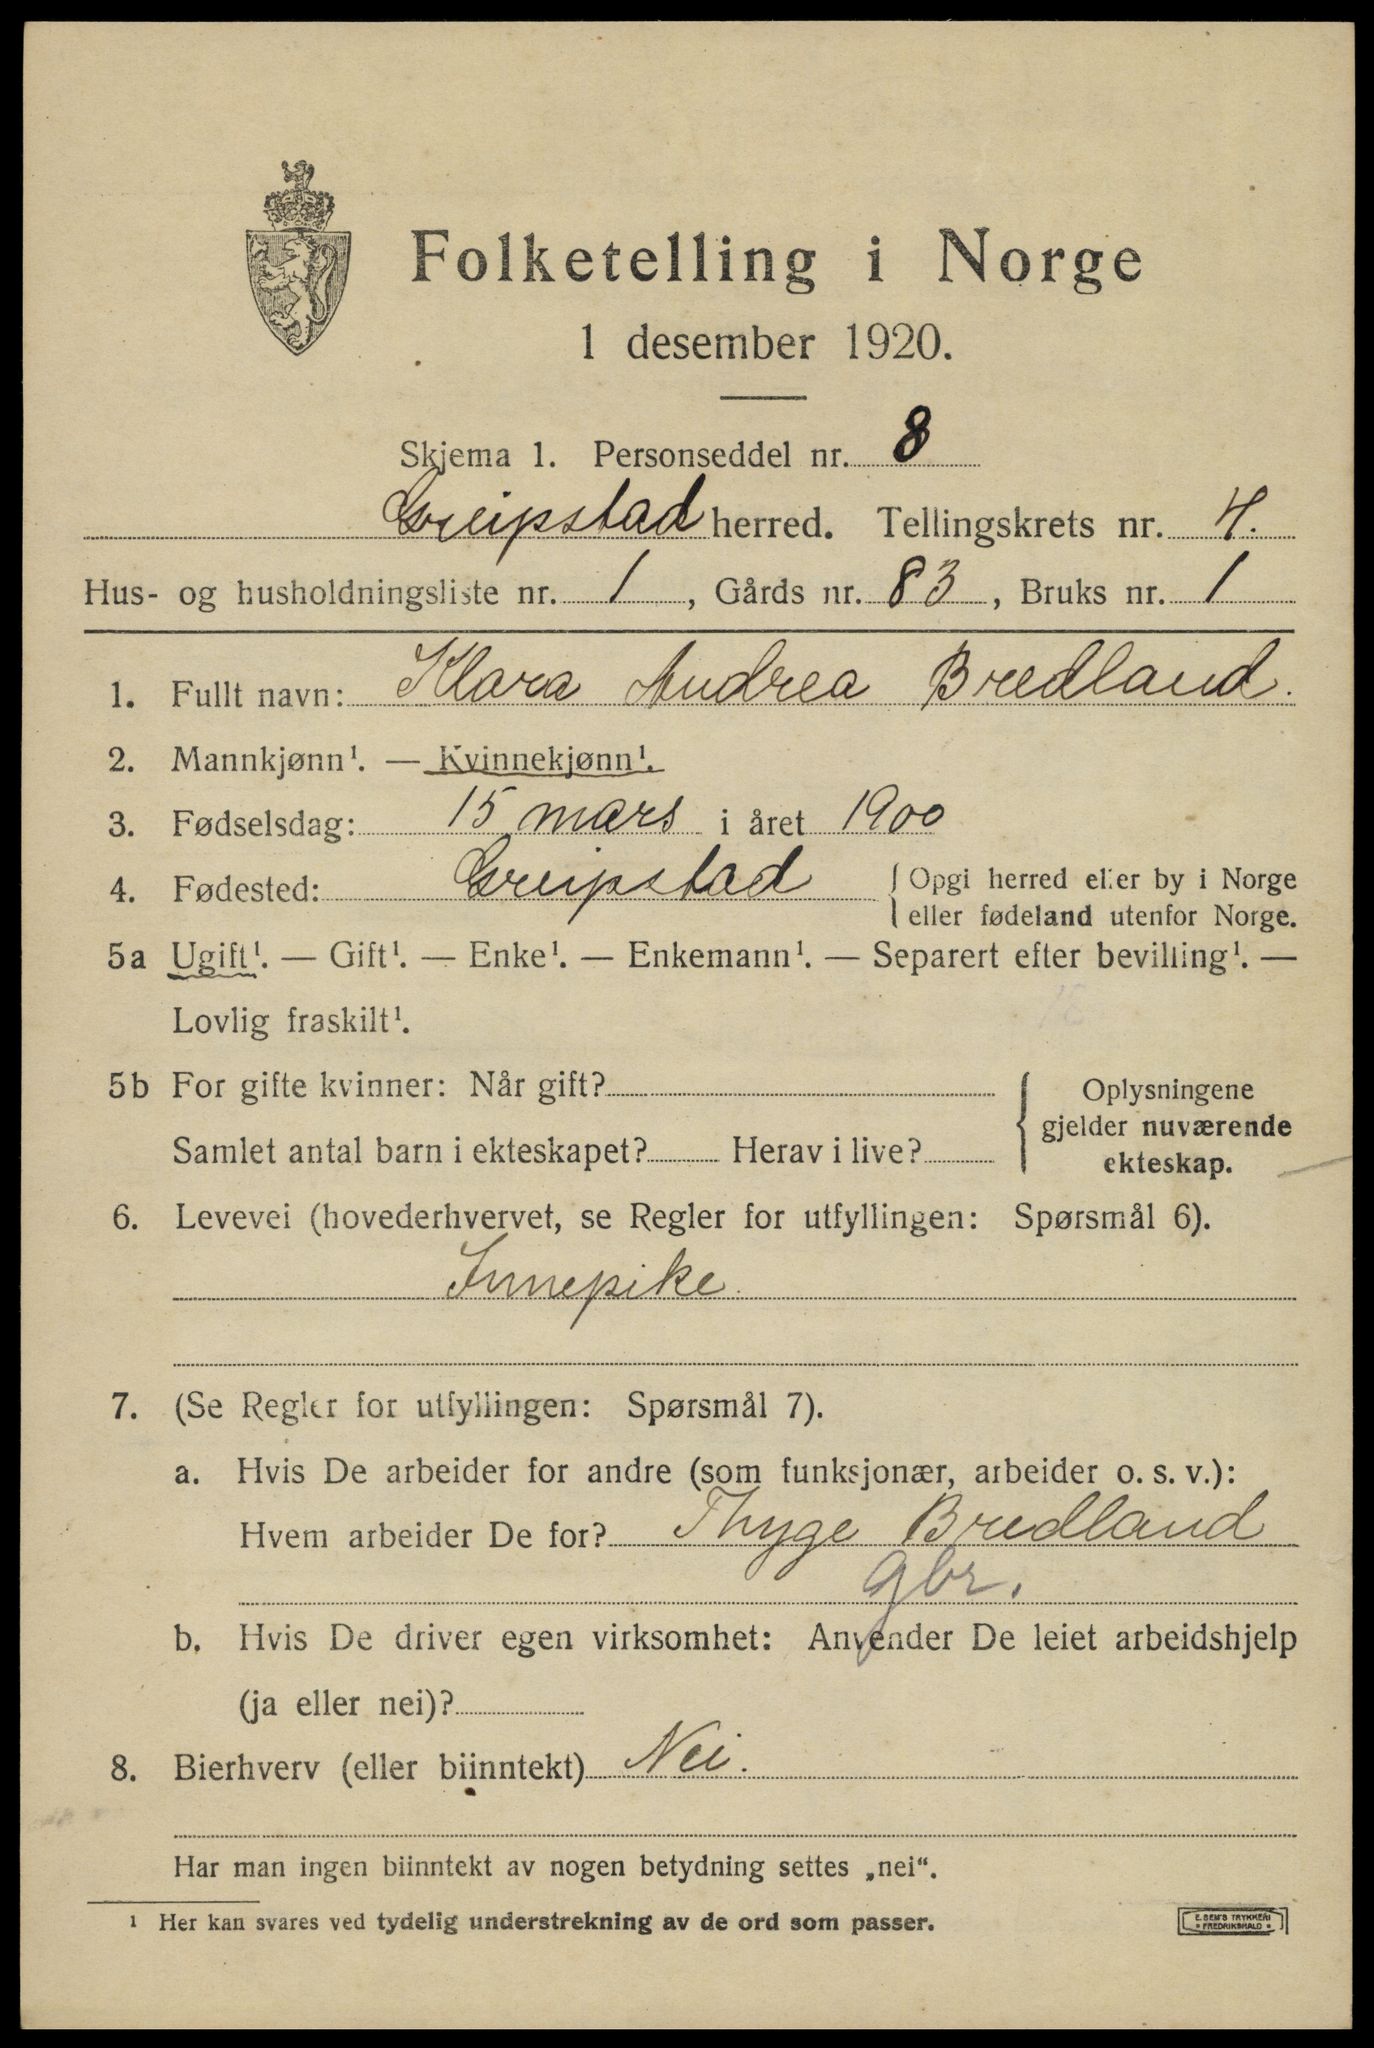 Folketelling i Norge
1 desember 1920.
Skjema 1. Personseddel nr. 8
Greipstad herred. Tellingskrets nr. 4.
Hus- og husholdningsliste nr. 1, Gårds nr. 83, Bruks nr. 1
1. Fullt navn: Klara Andrea Bredland.
2. Mannkjønn¹. — Kvinnekjønn¹.
3. Fødselsdag: 15 mars i året 1900
4. Fødested: Greipstad { Opgi herred eller by i Norge
eller fødeland utenfor Norge.
5a Ugift¹. — Gift¹. — Enke¹. — Enkemann¹. — Separert efter bevilling¹. —
Lovlig fraskilt¹.
5b For gifte kvinner: Når gift? { Oplysningene
gjelder nuværende
Samlet antal barn i ekteskapet? Herav i live? ekteskap.
6. Levevei (hovederhvervet, se Regler for utfyllingen: Spørsmål 6).
Innepike.
7. (Se Regler for utfyllingen: Spørsmål 7).
a. Hvis De arbeider for andre (som funksjonær, arbeider o. s. v.):
Hvem arbeider De for? Thyge Bredland
gbr.
b. Hvis De driver egen virksomhet: Anvender De leiet arbeidshjelp
(ja eller nei)?
8. Bierhverv (eller biinntekt) Nei.
Har man ingen biinntekt av nogen betydning settes „nei“.
¹ Her kan svares ved tydelig understrekning av de ord som passer.
E. SEM'S TRYKKERI
* FREDRIKSHALD *